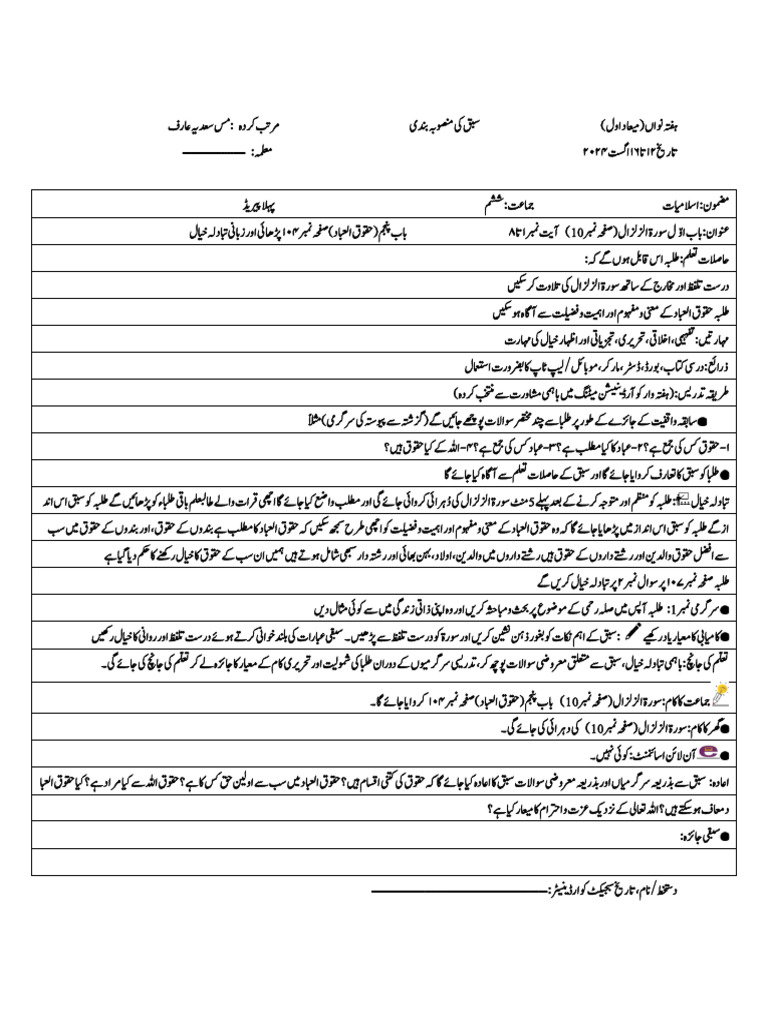 ہفتہ نواں (میعاد اول) سبق کی منصوبہ بندی مرتب کردہ : مس سعدیہ عارف
تاریخ ۱۲ تا ۱۶ اگست ۲۰۲۴ معلمہ: ـــــــــــــــ
مضمون: اسلامیات جماعت: ششم پہلا پیریڈ
عنوان: باب اوّل سورۃ الزلزال (صفحہ نمبر 10) آیت نمبر ۱ تا ۸ باب پنجم (حقوق العباد) صفحہ نمبر ۱۰۴ پڑھائی اور زبانی تبادلہ خیال
حاصلات تعلم: طلبہ اس قابل ہوں گے کہ:
درست تلفظ اور مخارج کے ساتھ سورۃ الزلزال کی تلاوت کر سکیں
طلبہ حقوق العباد کے معنی و مفہوم اور اہمیت و فضیلت سے آگاہ ہو سکیں
مہارتیں: تفہیمی، اخلاقی، تحریری، تجزیاتی اور اظہار خیال کی مہارت
ذرائع: درسی کتاب، بورڈ، ڈسٹر، مارکر، موبائل/ لیپ ٹاپ کا بضرورت استعمال
طریقہ تدریس: (ہفتہ وار کو آرڈینیشن میٹنگ میں باہمی مشاورت سے منتخب کردہ)
●سابقہ واقفیت کے جائزے کے طور پر طلبا سے چند مختصر سوالات پوچھے جائیں گے (گزشتہ سے پیوستہ کی سرگرمی) مثلاً
۱- حقوق کس کی جمع ہے؟ ۲- عباد کا کیا مطلب ہے؟ ۳- عباد کس کی جمع ہے؟ ۴- اللہ کے کیا حقوق ہیں؟
●طلبا کو سبق کا تعارف کروایا جائے گا اور سبق کے حاصلات تعلم سے آگاہ کیا جائے گا
تبادلہ خیال: طلبہ کو منظم اور متوجہ کرنے کے بعد پہلے 5 منٹ سورۃ الزلزال کی دُہرائی کروائی جائے گی اور مطلب واضع کیا جائے گا اچھی قرات والے طالبعلم باقی طلباء کو پڑھائیں گے طلبہ کو سبق اس اند
از گے طلبہ کو سبق اس انداز میں پڑھایا جائے گا کہ وہ حقوق العباد کے معنی و مفہوم اور اہمیت و فضیلت کو اچھی طرح سمجھ سکیں کہ حقوق العباد کا مطلب ہے بندوں کے حقوق، اور بندوں کے حقوق میں سب
سے افضل حقوق والدین اور رشتے داروں کے حقوق ہیں رشتے داروں میں والدین، اولاد، بہن بھائی اور رشتہ دار سبھی شامل ہوتے ہیں ہمیں ان سب کے حقوق کا خیال رکھنے کا حکم دیا گیا ہے
طلبہ صفحہ نمبر ۱۰۷ پر سوال نمبر ۲ پر تبادلہ خیال کریں گے
●سرگرمی نمبر 1: طلبہ آپس میں صلہ رحمی کے موضوع پر بحث و مباحث کریں اور وہ اپنی ذاتی زندگی میں سے کوئی مثال دیں
●کامیابی کا معیار یاد رکھیے: سبق کے اہم نکات کو بغور ذہن نشین کریں اور سورۃ کو درست تلفظ سے پڑھیں۔ سبقی عبارات کی بلند خوانی کرتے ہوئے درست تلفظ اور روانی کا خیال رکھیں
تعلّم کی جانچ: باہمی تبادلہ خیال، سبق سے متعلق معروضی سوالات پوچھ کر، تدریسی سرگرمیوں کے دوران طلبا کی شمولیت اور تحریری کام کے معیار کا جائزہ لے کر تعلّم کی جانچ کی جائے گی۔
جماعت کا کام: سورۃ الزلزال (صفحہ نمبر 10) باب پنجم (حقوق العباد) صفحہ نمبر ۱۰۴ کروایا جائے گا۔
●گھر کا کام: سورۃ الزلزال (صفحہ نمبر 10) کی دہرائی کی جائے گی۔
●آن لائن اسائنمنٹ: کوئی نہیں۔
اعادہ: سبق سے بذریعہ سرگرمیاں اور بذریعہ معروضی سوالات سبق کا اعادہ کیا جائے گا کہ حقوق کی کتنی اقسام ہیں؟ حقوق العباد میں سب سے اولین حق کس کا ہے؟ حقوق اللہ سے کیا مراد ہے؟ کیا حقوق العبا
د معاف ہو سکتے ہیں؟ اللہ تعالی کے نزدیک عزت و احترام کا معیار کیا ہے؟
●سبقی جائزہ:
دستخط/ نام، تاریخ سبجیکٹ کوارڈینیٹر: ـــــــــــــــــــــــــــــ